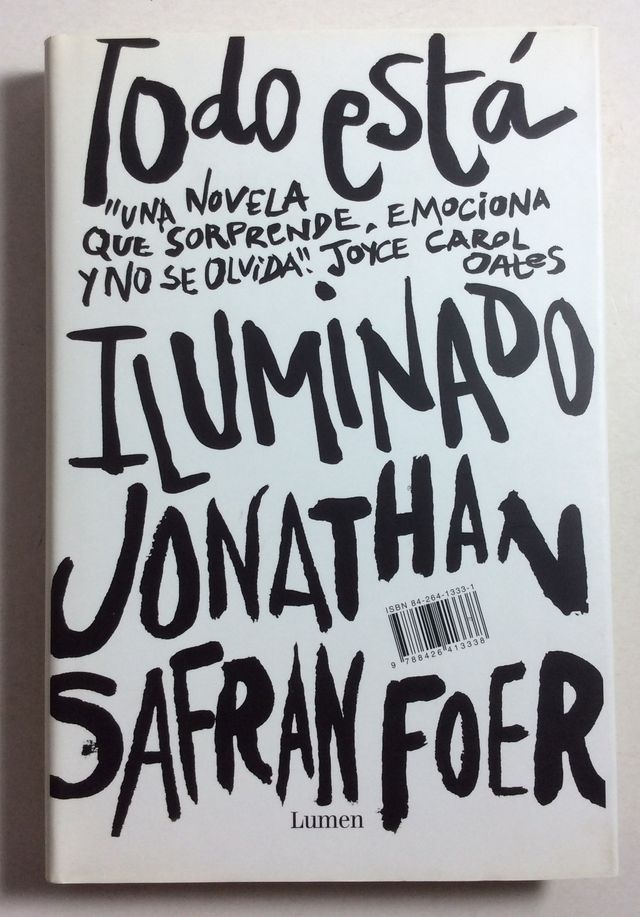 Todo está
"UNA NOVELA
QUE SORPRENDE, EMOCIONA
Y NO SE OLVIDA". JOYCE CAROL
OATES
ILUMINADO
JONATHAN
ISBN 84-264-1333-1
9 788426 413338
SAFRAN FOER
Lumen